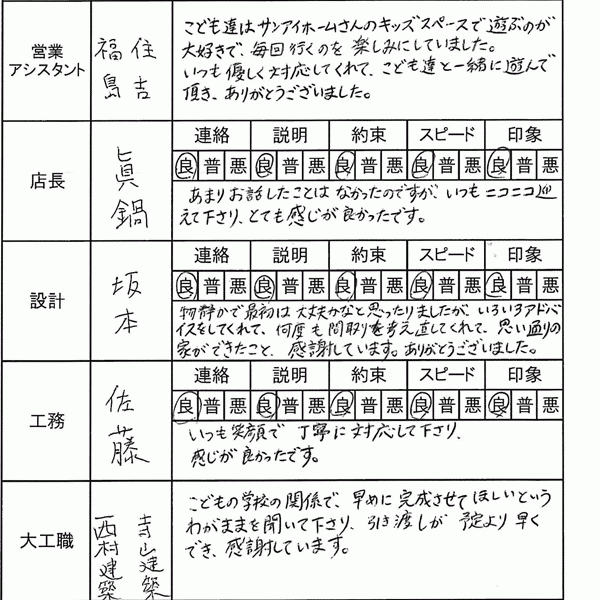 営業
アシスタント
住吉
福島
こども達はサンアイホームさんのキッズスペースで遊ぶのが
大好きで、毎回行くのを楽しみにしていました。
いつも優しく対応してくれて、こども達と一緒に遊んで
頂き、ありがとうございました。
店長
眞鍋
連絡 説明 約束 スピード 印象
良 普 悪 良 普 悪 良 普 悪 良 普 悪 良 普 悪
あまりお話したことはなかったのですが、いつもニコニコ迎
えて下さり、とても感じが良かったです。
設計
坂本
連絡 説明 約束 スピード 印象
良 普 悪 良 普 悪 良 普 悪 良 普 悪 良 普 悪
物静かで最初は大丈夫かなと思ったりしましたが、いろいろアドバ
イスをしてくれて、何度も間取りを考え直してくれて、思い通りの
家ができたこと、感謝しています。ありがとうございました。
工務
佐藤
連絡 説明 約束 スピード 印象
良 普 悪 良 普 悪 良 普 悪 良 普 悪 良 普 悪
いつも笑顔で丁寧に対応して下さり、
感じが良かったです。
大工職
寺山建築
西村建築
こどもの学校の関係で、早めに完成させてほしいという
わがままを聞いて下さり、引き渡しが予定より早く
でき、感謝しています。